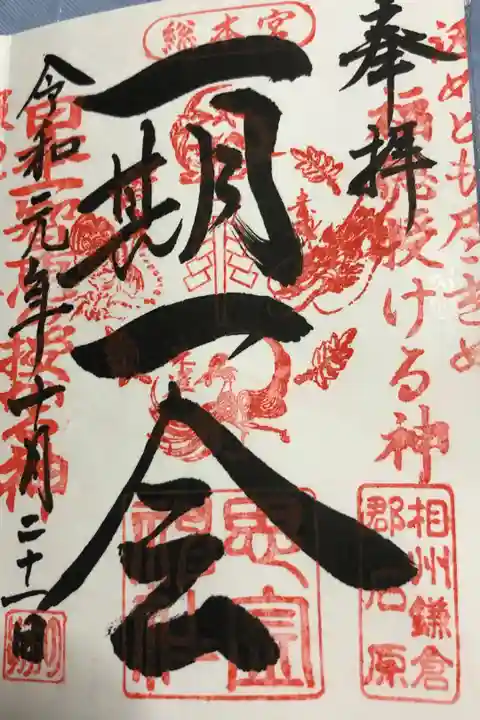 汲めども尽きぬ
福徳授ける神
奉拝
相州鎌倉
郡石原
総本宮
一期一会
令和元年十月二十一日